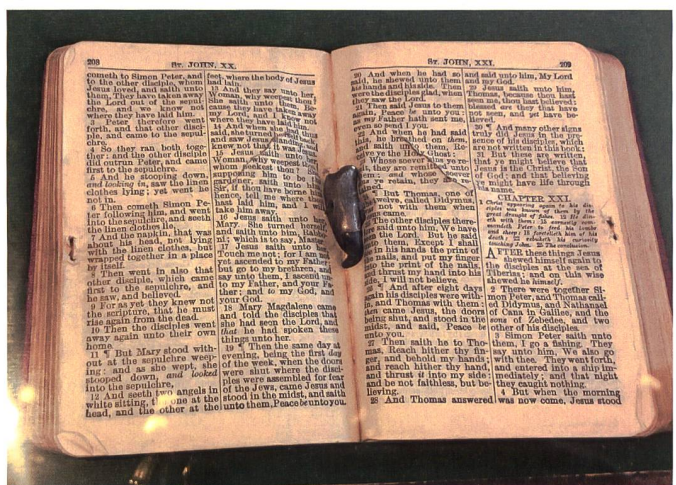 208
ST. JOHN, XX.
cometh to Simon Peter, and
to the other disciple, whom
Jesus loved, and saith unto
them, They have taken away
the Lord out of the sepul-
chre, and we know not
where they have laid him.
3 Peter therefore went
forth, and that other disci-
ple, and came to the sepul-
chre.
4 So they ran both toge-
ther: and the other disciple
did outrun Peter, and came
first to the sepulchre.
5 And he stooping down,
and looking in, saw the linen
clothes lying; yet went he
not in.
6 Then cometh Simon Pe-
ter following him, and went
into the sepulchre, and seeth
the linen clothes lie,
7 And the napkin, that was
about his head, not lying
with the linen clothes, but
wrapped together in a place
by itself.
8 Then went in also that
other disciple, which came
first to the sepulchre, and
he saw, and believed.
9 For as yet they knew not
the scripture, that he must
rise again from the dead.
10 Then the disciples went
away again unto their own
home.
11 ¶ But Mary stood with-
out at the sepulchre weep-
ing: and as she wept, she
stooped down, and looked
into the sepulchre,
12 And seeth two angels in
white sitting, the one at the
head, and the other at the
feet, where the body of Jesus
had lain.
13 And they say unto her,
Woman, why weepest thou?
She saith unto them, Be-
cause they have taken away
my Lord, and I know not
where they have laid him.
14 And when she had thus
said, she turned herself back,
and saw Jesus standing, and
knew not that it was Jesus.
15 Jesus saith unto her,
Woman, why weepest thou?
whom seekest thou? She,
supposing him to be the
gardener, saith unto him,
Sir, if thou have borne him
hence, tell me where thou
hast laid him, and I will
take him away.
16 Jesus saith unto her,
Mary. She turned herself,
and saith unto him, Rabbo-
ni; which is to say, Master.
17 Jesus saith unto her,
Touch me not; for I am not
yet ascended to my Father:
but go to my brethren, and
say unto them, I ascend un-
to my Father, and your Fa-
ther; and to my God, and
your God.
18 Mary Magdalene came
and told the disciples that
she had seen the Lord, and
that he had spoken these
things unto her.
19 ¶ Then the same day at
evening, being the first day
of the week, when the doors
were shut where the disci-
ples were assembled for fear
of the Jews, came Jesus and
stood in the midst, and saith
unto them, Peace be unto you.
ST. JOHN, XXI.
209
20 And when he had so
said, he shewed unto them
his hands and his side. Then
were the disciples glad, when
they saw the Lord.
21 Then said Jesus to them
again, Peace be unto you:
my Father hath sent me,
even so send I you.
22 And when he had said
this, he breathed on them,
saith unto them, Re-
ceive ye the Holy Ghost:
Whose soever sins ye
remit, they are remitted unto
them; and whose soever
sins ye retain, they are
retained.
But Thomas, one of
twelve, called Didymus,
not with them when
came.
The other disciples there-
said unto him, We have
the Lord. But he said
them, Except I shall
in his hands the print of
nails, and put my finger
the print of the nails,
thrust my hand into his
side, I will not believe.
26 ¶ And after eight days
again his disciples were with-
in, and Thomas with them:
then came Jesus, the doors
being shut, and stood in the
midst, and said, Peace be
unto you.
27 Then saith he to Tho-
mas, Reach hither thy fin-
ger, and behold my hands;
and reach hither thy hand,
and thrust it into my side:
and be not faithless, but be-
lieving.
28 And Thomas answered
and said unto him, My Lord
and my God.
29 Jesus saith unto him,
Thomas, because thou hast
seen me, thou hast believed:
blessed are they that have
not seen, and yet have be-
lieved.
30 ¶ And many other signs
truly did Jesus in the pre-
sence of his disciples, which
are not written in this book:
31 But these are written,
that ye might believe that
Jesus is the Christ, the Son
of God; and that believing
ye might have life through
his name.
CHAPTER XXI.
1 Christ appearing again to his dis-
ciples was known of them by the
great draught of fishes. 12 He din-
eth with them: 15 earnestly com-
mandeth Peter to feed his lambs
and sheep: 18 foretelleth him of his
death: 22 rebuketh his curiosity
touching John. 25 The conclusion.
AFTER these things Jesus
shewed himself again to
the disciples at the sea of
Tiberias; and on this wise
shewed he himself.
2 There were together Si-
mon Peter, and Thomas call-
ed Didymus, and Nathanael
of Cana in Galilee, and the
sons of Zebedee, and two
other of his disciples.
3 Simon Peter saith unto
them, I go a fishing. They
say unto him, We also go
with thee. They went forth,
and entered into a ship im-
mediately; and that night
they caught nothing.
4 But when the morning
was now come, Jesus stood